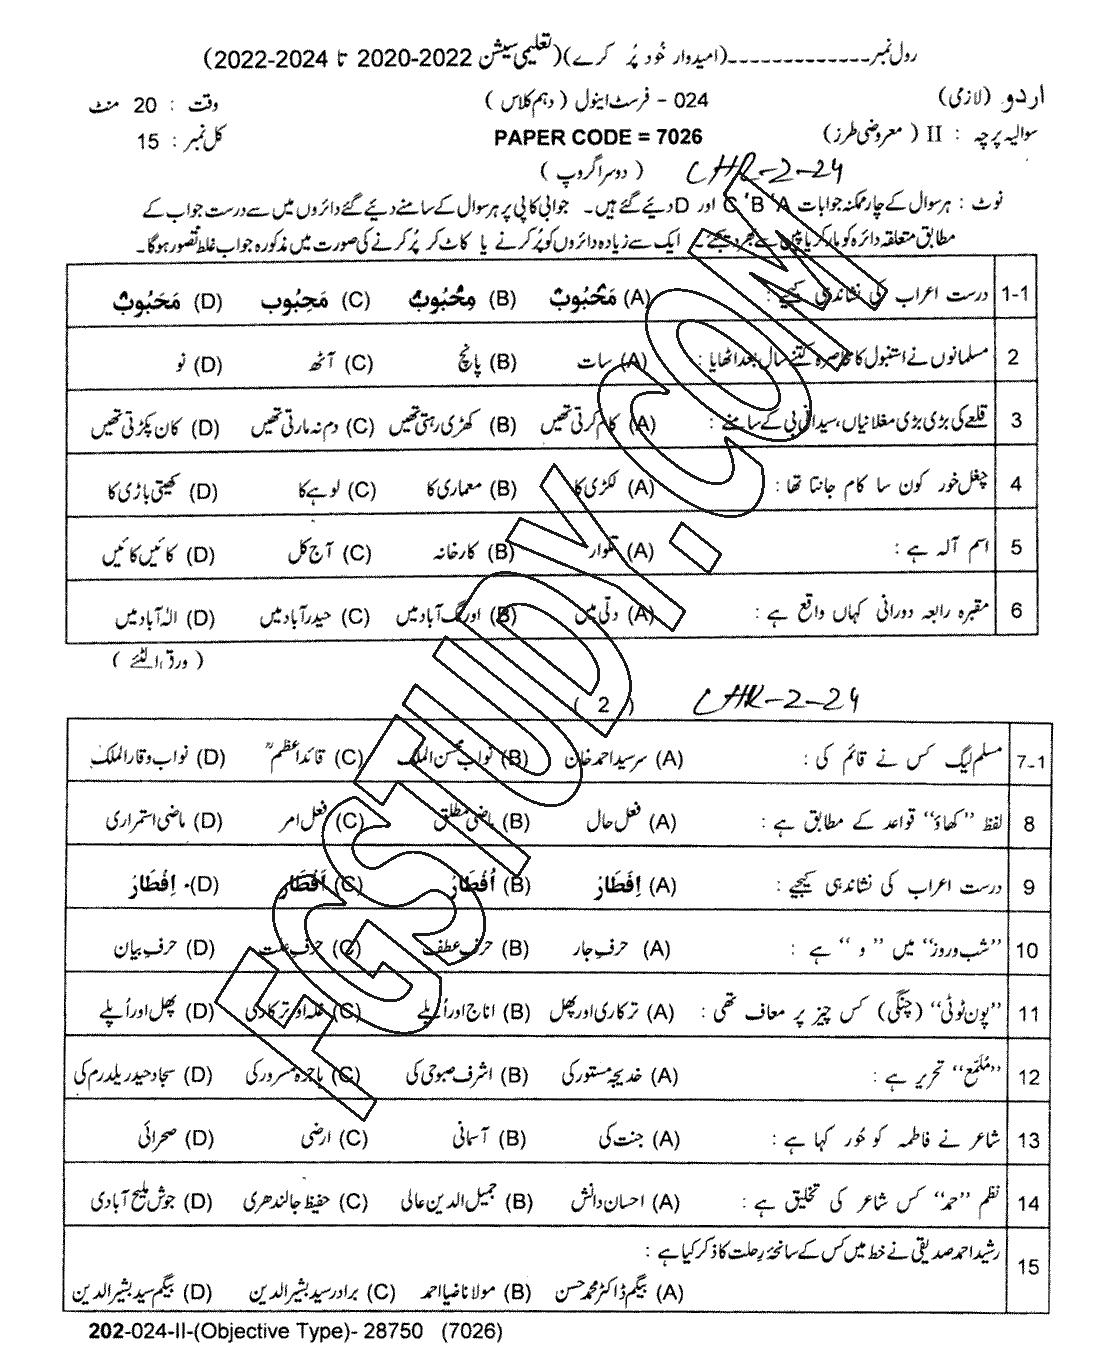 رول نمبر ــــــــــــــــ (امیدوار خُود پُر کرے) (تعلیمی سیشن 2022-2020 تا 2024-2022)
اردو (لازمی) 024 - فرسٹ اینول (دہم کلاس) وقت : 20 منٹ
سوالیہ پرچہ : II (معروضی طرز) PAPER CODE = 7026 کل نمبر : 15
(دوسرا گروپ) CHR-2-24
نوٹ : ہر سوال کے چار ممکنہ جوابات A ' B ' C اور D دیئے گئے ہیں۔ جوابی کاپی پر ہر سوال کے سامنے دیئے گئے دائروں میں سے درست جواب کے
مطابق متعلقہ دائرہ کو مارکر یا پین سے بھر دیجئے۔ ایک سے زیادہ دائروں کو پُر کرنے یا کاٹ کر پُر کرنے کی صورت میں مذکورہ جواب غلط تصور ہوگا۔
1-1 درست اعراب کی نشاندہی کیجیے : (A) مَحْبُوبْ (B) مِحْبُوبْ (C) مَحِبُوب (D) مَحَبُوبْ
2 مسلمانوں نے استنبول کا محاصرہ کتنے سال بعد اٹھایا : (A) سات (B) پانچ (C) آٹھ (D) نو
3 قلعے کی بڑی بڑی مغلانیاں، سیدانی بی کے سامنے : (A) کام کرتی تھیں (B) کھڑی رہتی تھیں (C) دم نہ مارتی تھیں (D) کان پکڑتی تھیں
4 چغل خور کون سا کام جانتا تھا : (A) لکڑی کا (B) معماری کا (C) لوہے کا (D) کھیتی باڑی کا
5 اسم آلہ ہے : (A) تلوار (B) کارخانہ (C) آج کل (D) کائیں کائیں
6 مقبرہ رابعہ دورانی کہاں واقع ہے : (A) دلّی میں (B) اورنگ آباد میں (C) حیدرآباد میں (D) الہٰ آباد میں
(ورق الٹئے)
( 2 ) CHR-2-24
7-1 مسلم لیگ کس نے قائم کی : (A) سرسید احمد خان (B) نواب محسن الملک (C) قائداعظمؒ (D) نواب وقار الملک
8 لفظ "کھاؤ" قواعد کے مطابق ہے : (A) فعل حال (B) ماضی مطلق (C) فعل امر (D) ماضی استمراری
9 درست اعراب کی نشاندہی کیجیے : (A) اِفَطَارْ (B) اُفْطَارْ (C) اَفْطَارْ (D) اِفْطَارْ
10 "شب و روز" میں "و" ہے : (A) حرف جار (B) حرف عطف (C) حرف علت (D) حرف بیان
11 "پون ٹوٹی" (چنگی) کس چیز پر معاف تھی : (A) ترکاری اور پھل (B) اناج اور اُپلے (C) غلہ اور ترکاری (D) پھل اور اُپلے
12 "مُلمّع" تحریر ہے : (A) خدیجہ مستور کی (B) اشرف صبوحی کی (C) ہاجرہ مسرور کی (D) سجاد حیدر یلدرم کی
13 شاعر نے فاطمہ کو حُور کہا ہے : (A) جنت کی (B) آسمانی (C) ارضی (D) صحرائی
14 نظم "حمد" کس شاعر کی تخلیق ہے : (A) احسان دانش (B) جمیل الدین عالی (C) حفیظ جالندھری (D) جوش ملیح آبادی
15 رشید احمد صدیقی نے خط میں کس کے سانحۂ رحلت کا ذکر کیا ہے :
(A) بیگم ڈاکٹر محمد حسن (B) مولانا ضیا احمد (C) برادر سید بشیر الدین (D) بیگم سید بشیر الدین
202-024-II-(Objective Type)- 28750 (7026)
FGSTUDY.COM